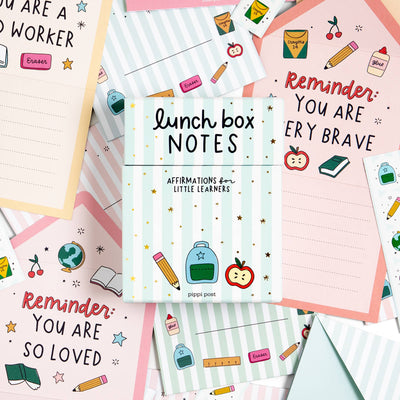 YOU ARE A
D WORKER
Eraser
CRAYONS
24
Glue
Reminder:
YOU ARE
ERY BRAVE
lunch box
NOTES
AFFIRMATIONS for
LITTLE LEARNERS
pippi post
Reminder:
YOU ARE
SO LOVED
Glue
Eraser